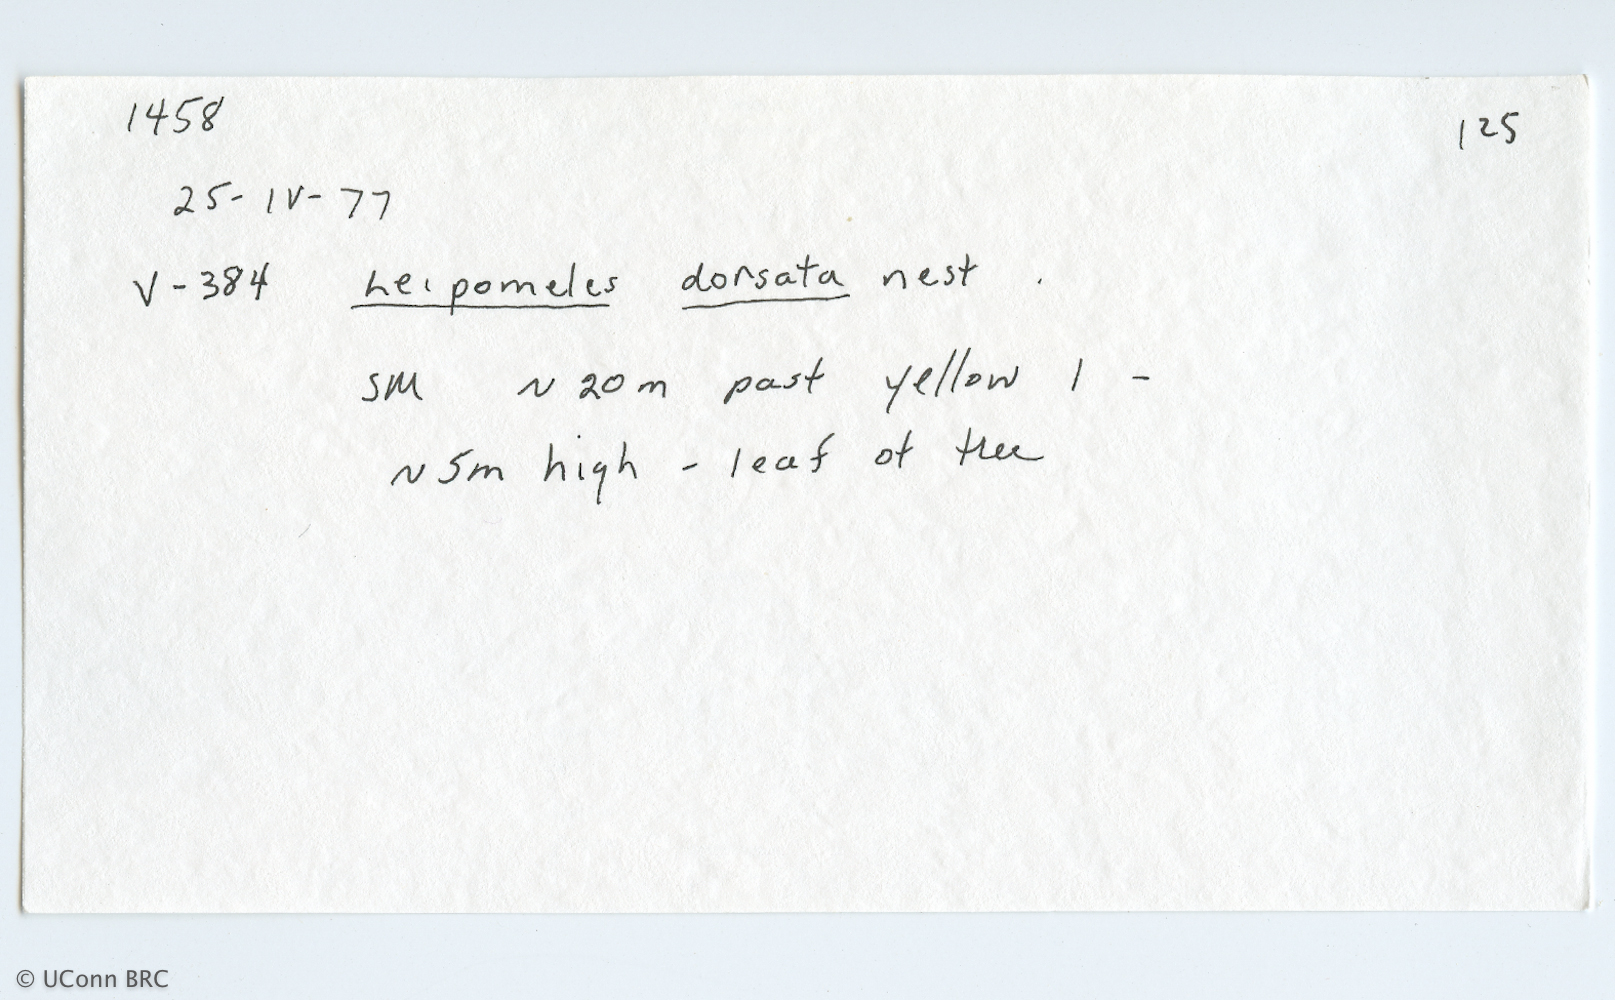 1458
125
25-IV-77
V-384 Leipomeles dorsata nest.
SM ~20m past yellow 1 -
~5m high - leaf of tree
© UConn BRC